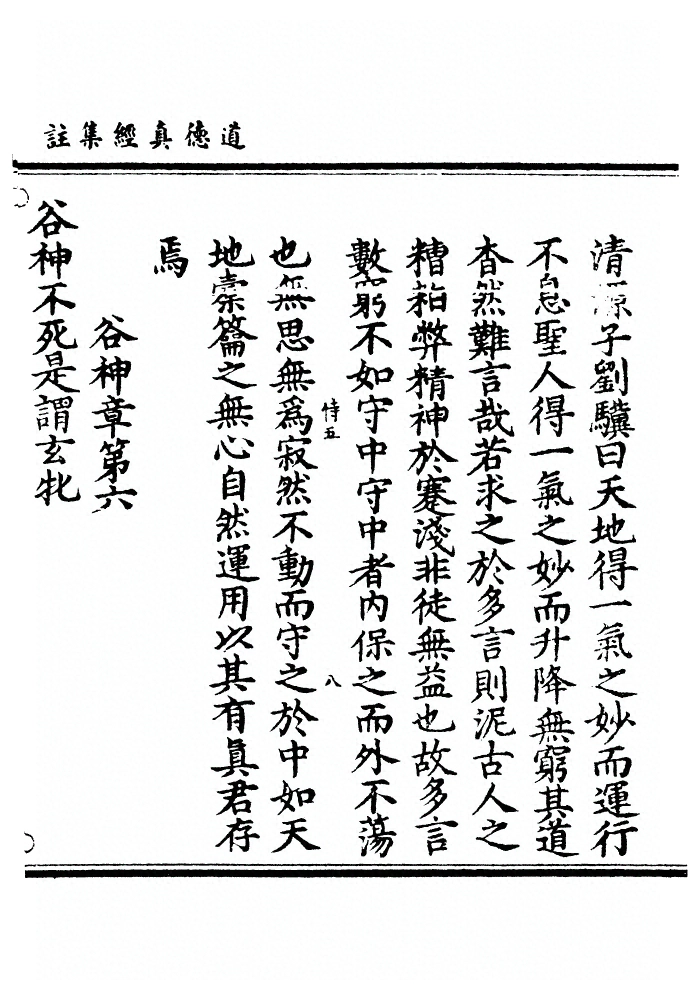 道德真經集註
清源子劉驥曰天地得一氣之妙而運行
不息聖人得一氣之妙而升降無窮其道
杳然難言哉若求之於多言則泥古人之
糟粕弊精神於蹇淺非徒無益也故多言
數窮不如守中守中者內保之而外不蕩
恃五
八
也無思無爲寂然不動而守之於中如天
地橐籥之無心自然運用以其有眞君存
焉
谷神章第六
谷神不死是謂玄牝